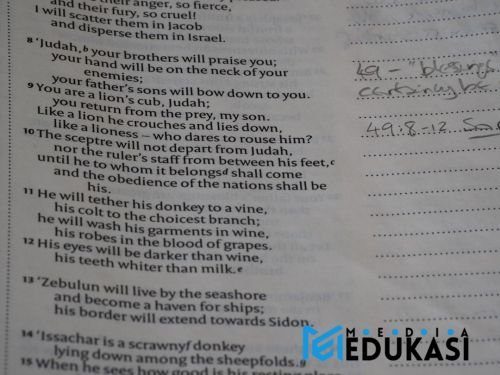 their anger, so fierce,
and their fury, so cruel!
I will scatter them in Jacob
and disperse them in Israel.
8 ‘Judah,b your brothers will praise you;
your hand will be on the neck of your
enemies;
your father's sons will bow down to you.
9 You are a lion's cub, Judah;
you return from the prey, my son.
Like a lion he crouches and lies down,
like a lioness – who dares to rouse him?
10 The sceptre will not depart from Judah,
nor the ruler's staff from between his feet,c
until he to whom it belongsd shall come
and the obedience of the nations shall be
his.
11 He will tether his donkey to a vine,
his colt to the choicest branch;
he will wash his garments in wine,
his robes in the blood of grapes.
12 His eyes will be darker than wine,
his teeth whiter than milk.e
13 ‘Zebulun will live by the seashore
and become a haven for ships;
his border will extend towards Sidon.
14 ‘Issachar is a scrawnyf donkey
lying down among the sheepfolds.g
15 When he sees how good is his resting place
49 – "blessings
49:8-12
MEDIA
EDUKASI